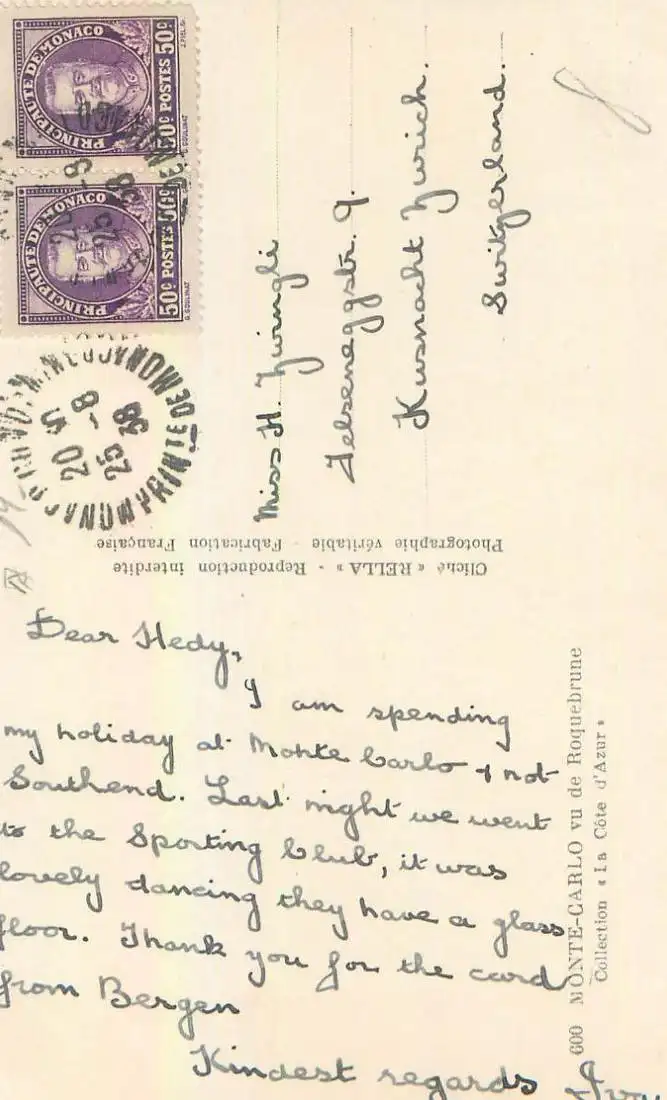 PRINCIPAUTE DE MONACO
50c POSTES 50c
J. PIEL SC.
G. GOULINAT
PRINCIPAUTE DE MONACO
50c POSTES 50c
G. GOULINAT
20
25 -8
38
Miss H. Zwingli
Felseneggstr. 9.
Kusnacht Zurich.
Switzerland.
Cliché « RELLA » - Reproduction interdite
Photographie véritable - Fabrication Française
Dear Hedy,
I am spending
my holiday at Monte Carlo & not
Southend. Last night we went
to the Sporting Club, it was
lovely dancing they have a glass
floor. Thank you for the card
from Bergen
Kindest regards
600 MONTE-CARLO vu de Roquebrune
Collection « La Côte d'Azur »